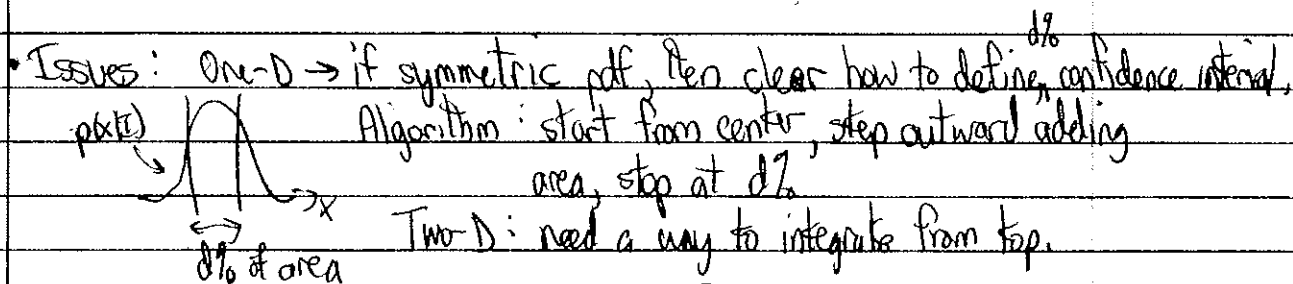 d%
• Issues: One-D → if symmetric pdf, then clear how to define ^ confidence interval.
p(x|I) Algorithm: start from center, step outward adding
area, stop at d%
→x
Two-D: need a way to integrate from top.
d% of area